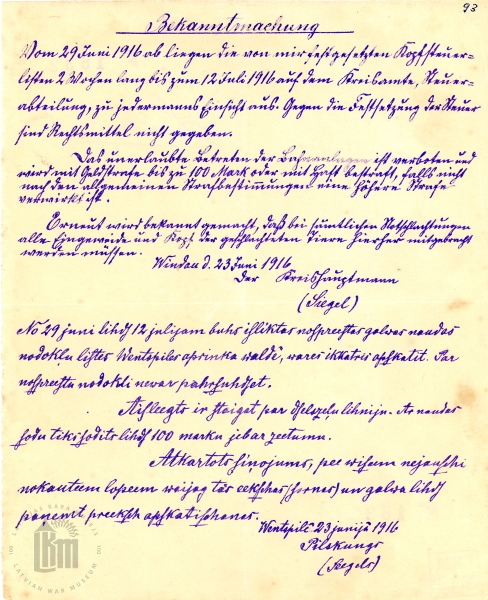 93
Bekanntmachung
Vom 29 Juni 1916 ab liegen die von mir festgesetzten Kopfsteuer-
listen 2 Wochen lang bis zum 12 Juli 1916 auf dem Kreisamte, Steuer-
abteilung, zu jedermanns Einsicht aus. Gegen die Festsetzung der Steuer
sind Rechtsmittel nicht gegeben.
Das unerlaubte Betreten der Bahnanlagen ist verboten und
wird mit Geldstrafe bis zu 100 Mark oder mit Haft bestraft, falls nicht
nach den allgemeinen Strafbestimmungen eine höhere Strafe
verwirkt ist.
Erneut wird bekannt gemacht, daß bei sämtlichen Notschlachtungen
alle Eingeweide und Kopf der geschlachteten Tiere hierher mitgebracht
werden müssen.
Windau d. 23 Juni 1916
Der Kreishauptmann
(Siegel)
No 29 juni lihds 12 julijam buhs isliktas nospreestas galwas naudas
nodokla listes Wentspils aprinka waldē, wares ikkatris apskatit. Par
nospreestu nodokli newar pahrsuhdset.
Aisleegts ir staigat par dselszelu lihniju. Ar naudas
sodu tiks sodits lihds 100 marku jeb ar zeetumu.
Atkartots sinojums, pee wiseem nejauschi
nokauteem lopeem wajag tās eekschas (sornas) un galwa lihds
panemt preeksch apskatischanas.
Wentspilī 23 junijā 1916
Pilskungs
(Seegels)
LKM
LATVIAN WAR MUSEUM